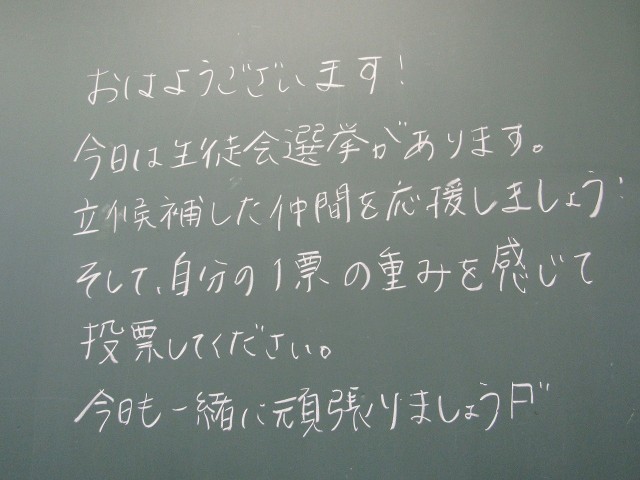 おはようございます!
今日は生徒会選挙があります。
立候補した仲間を応援しましょう!
そして、自分の1票の重みを感じて
投票してください。
今日も一緒に頑張りましょう